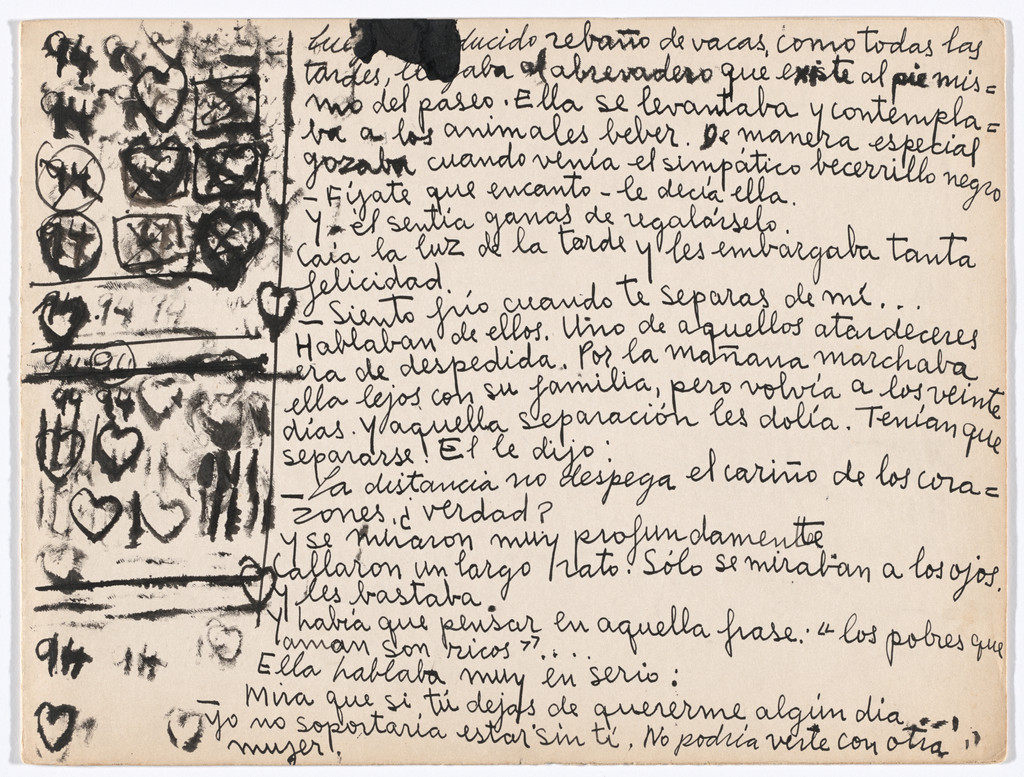 94 94
94
94
94
94 94 94
94 94
94 94
94 94
ducido rebaño de vacas, como todas las
tardes, llegaba al abrevadero que existe al pie mis=
mo del paseo. Ella se levantaba y contempla=
ba a los animales beber. De manera especial
gozaba cuando venía el simpático becerrillo negro
- Fíjate que encanto - le decía ella.
Y él sentía ganas de regalárselo.
Caía la luz de la tarde y les embargaba tanta
felicidad.
- Siento frío cuando te separas de mí...
Hablaban de ellos. Uno de aquellos atardeceres
era de despedida. Por la mañana marchaba
ella lejos con su familia, pero volvía a los veinte
días. Y aquella separación les dolía. Tenían que
separarse! El le dijo:
- La distancia no despega el cariño de los cora=
zones, ¿verdad?
y se miraron muy profundamente
Callaron un largo rato. Sólo se miraban a los ojos.
Y les bastaba.
Y había que pensar en aquella frase: "los pobres que
aman son ricos"....
Ella hablaba muy en serio:
Mira que si tú dejas de quererme algún día...
- yo no soportaría estar sin ti. No podría verte con otra
mujer!